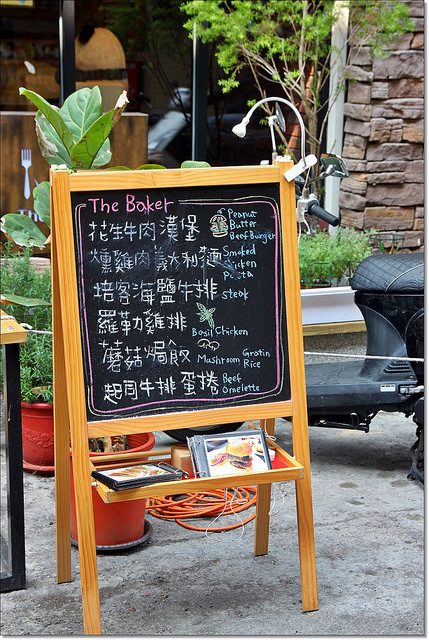 The Baker
花生牛肉漢堡 Peanut Butter Beef Burger
燻雞肉義大利麵 Smoked Chicken Pasta
培客海鹽牛排 steak
羅勒雞排 Basil Chicken
蘑菇焗飯 Mushroom Gratin Rice
起司牛排蛋捲 Beef Omelette